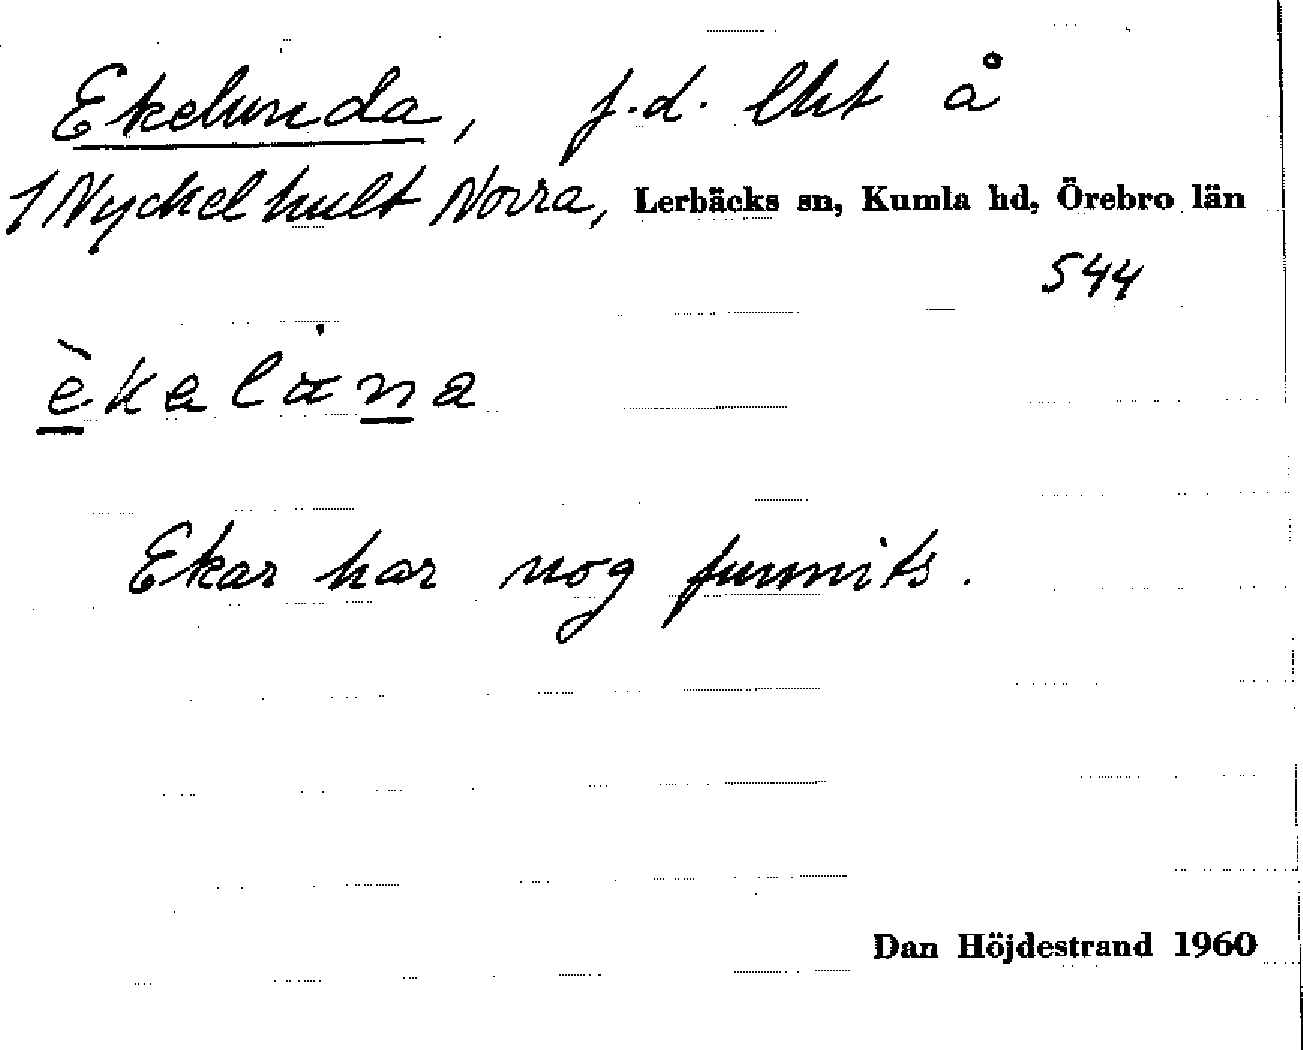 Ekelunda, f.d. lht å
1 Nyckelhult Norra, Lerbäcks sn, Kumla hd, Örebro län
544
Ekar har nog funnits.
Dan Höjdestrand 1960